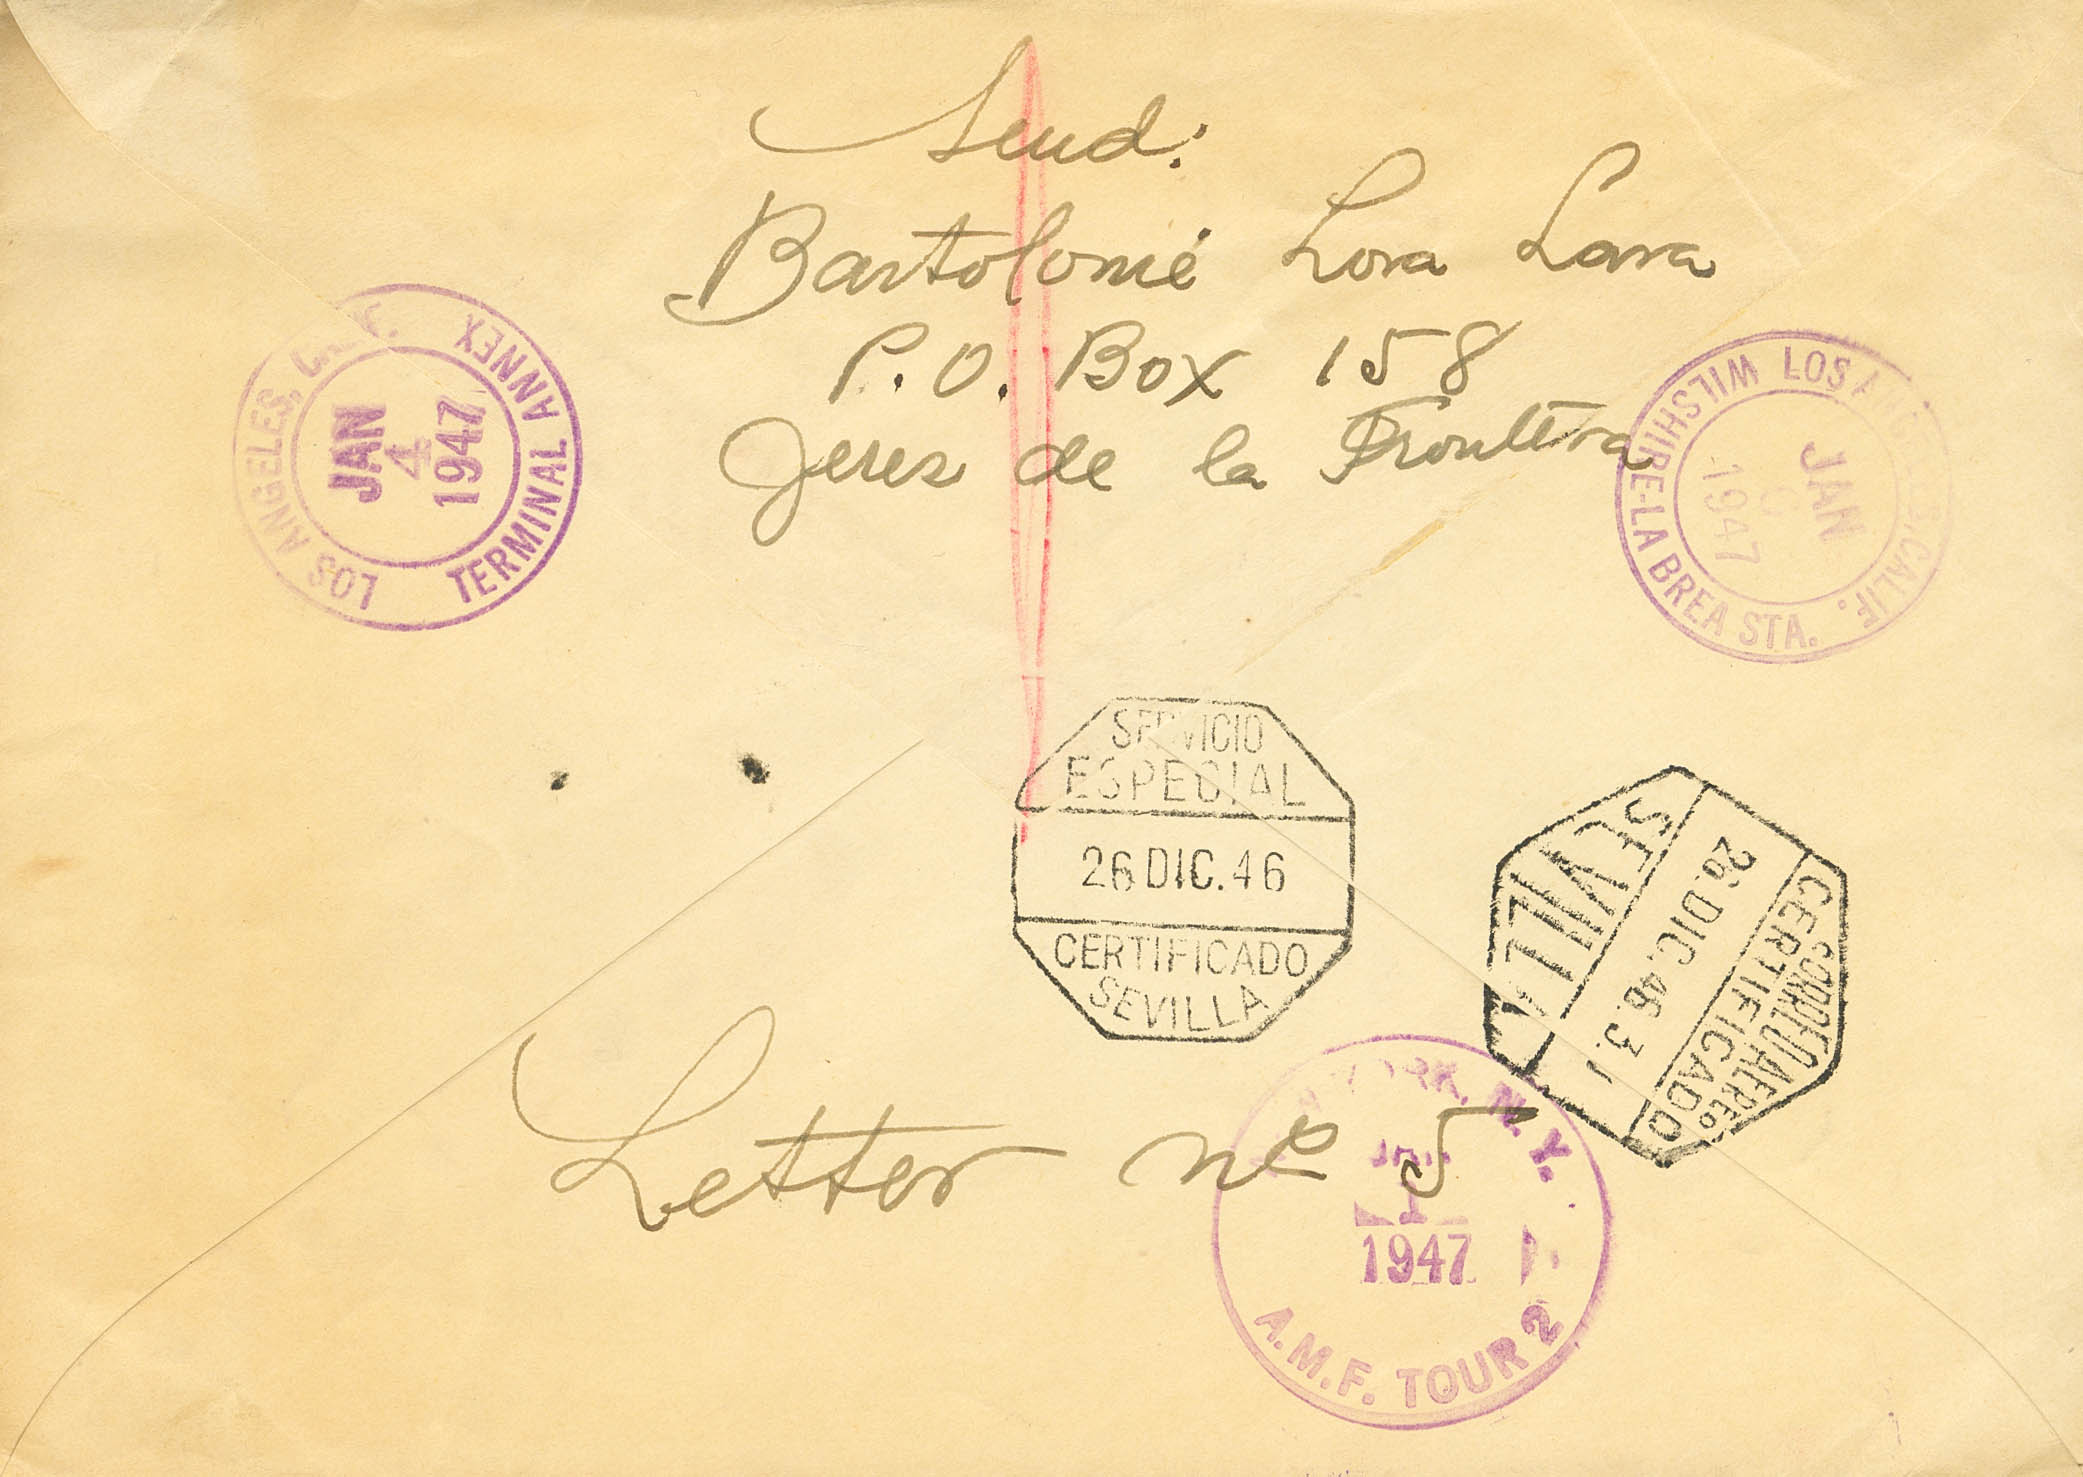 Send:
Bartolomé Lora Lara
P.O. Box 158
Jerez de la Frontera
LOS ANGELES,
TERMINAL ANNEX
JAN
4
1947
LOS ANGELES, CALIF.
WILSHIRE-LA BREA STA.
JAN
1947
SERVICIO
ESPECIAL
26 DIC. 46
CERTIFICADO
SEVILLA
CORREO AEREO
CERTIFICADO
26. DIC. 46. 3.
SEVILLA
Letter nº 5
YORK, N.Y.
1
1947
A.M.F. TOUR 2